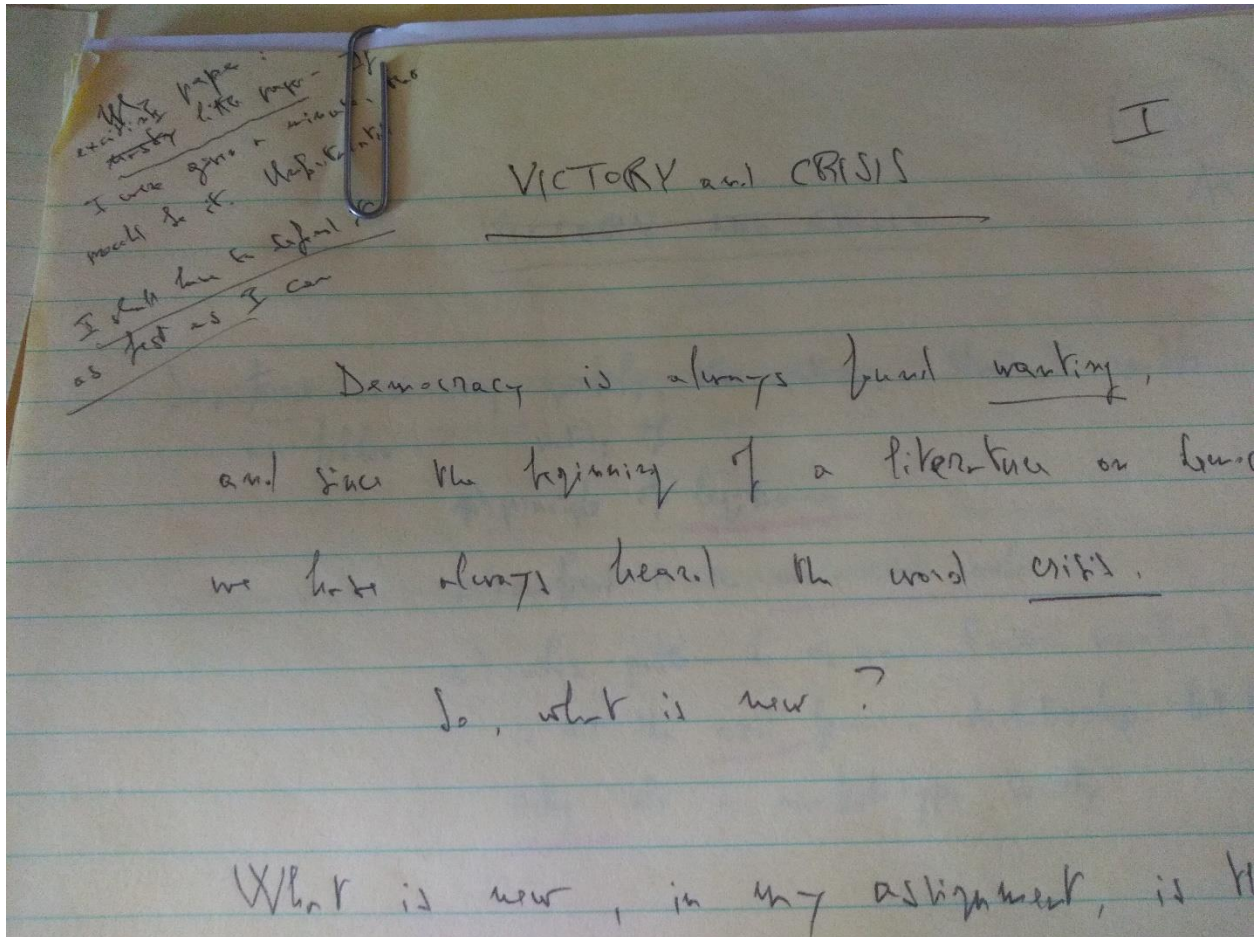 My paper:
exciting
little paper - If
I were given a minute, this
would be it. Unfortunately
I shall have to defend it
as fast as I can
I
VICTORY and CRISIS
Democracy is always found wanting,
and since the beginning of a literature on democ
we have always heard the word crisis.
So, what is new?
What is new, in my assignment, is th